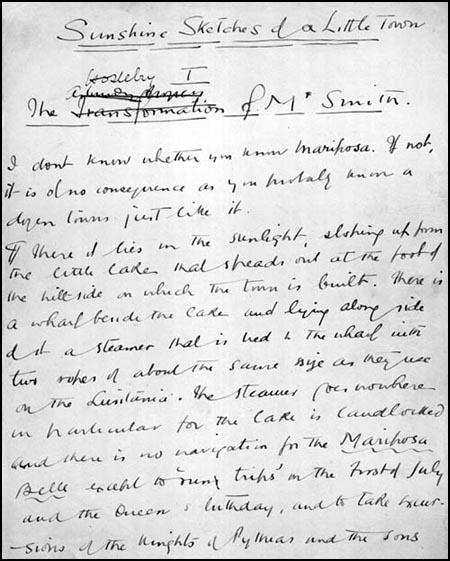 Sunshine Sketches of a Little Town
Hostelry I
The Transformation of Mr Smith.
I dont know whether you know Mariposa. If not,
it is of no consequence as you probably know a
dozen towns just like it.
¶ There it lies in the sunlight, sloping up from
the little lake that spreads out at the foot of
the hillside on which the town is built. There is
a wharf beside the lake and lying along side
of it a steamer that is tied to the wharf with
two ropes of about the same size as they use
on the Lusitania. The steamer goes nowhere
in particular for the lake is landlocked
and there is no navigation for the Mariposa
Belle except to "run trips" on the first of July
and the Queen's birthday, and to take excur-
-sions of the Knights of Pythias and the Sons